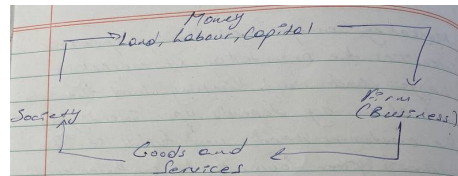 Money
Land, Labour, Capital
Society
Firm
(Business)
Goods and
Services